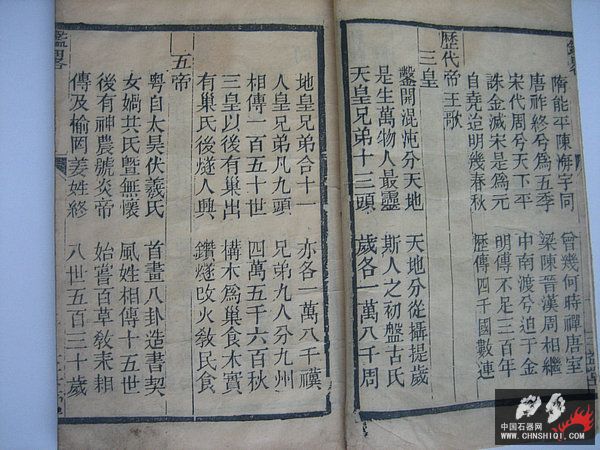 隋能平陳海宇同　曾幾何時禪唐室
唐祚終兮爲五季　梁陳晉漢周相繼
宋代周兮天下平　中南渡兮迫于金
誅金滅宋是爲元　明傳不足三百年
自堯迄明幾春秋　歷傳四千國數連
歷代帝王歌
三皇
鑿開混沌分天地　天地分從攝提歲
是生萬物人最靈　斯人之初盤古氏
天皇兄弟十三頭　歲各一萬八千周
地皇兄弟合十一　亦各一萬八千禩
人皇兄弟凡九頭　兄弟九人分九州
相傳一百五十世　四萬五千六百秋
三皇以後有巢出　構木爲巢食木實
有巢氏後燧人興　鑽燧改火敎民食
五帝
粤自太昊伏羲氏　首畫八卦造書契
女媧共氏曁無懷　風姓相傳十五世
後有神農號炎帝　始嘗百草敎耒耜
傳及榆罔姜姓終　八世五百三十歲
鑑畧
中国石器网
WWW.CHNSHIQI.COM